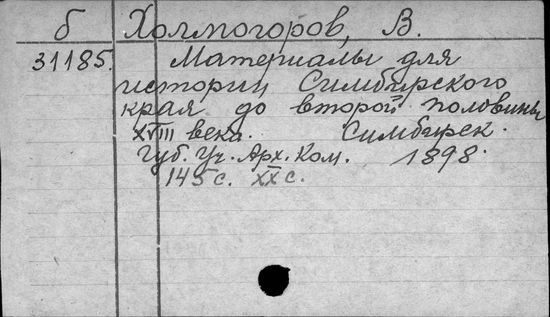 б Холмогоров, В.
31185. Материалы для
истории Симбирского
края до второй половины
XVIII века. Симбирск.
Губ. Уч. Арх. Ком. 1898.
145 с. XX с.